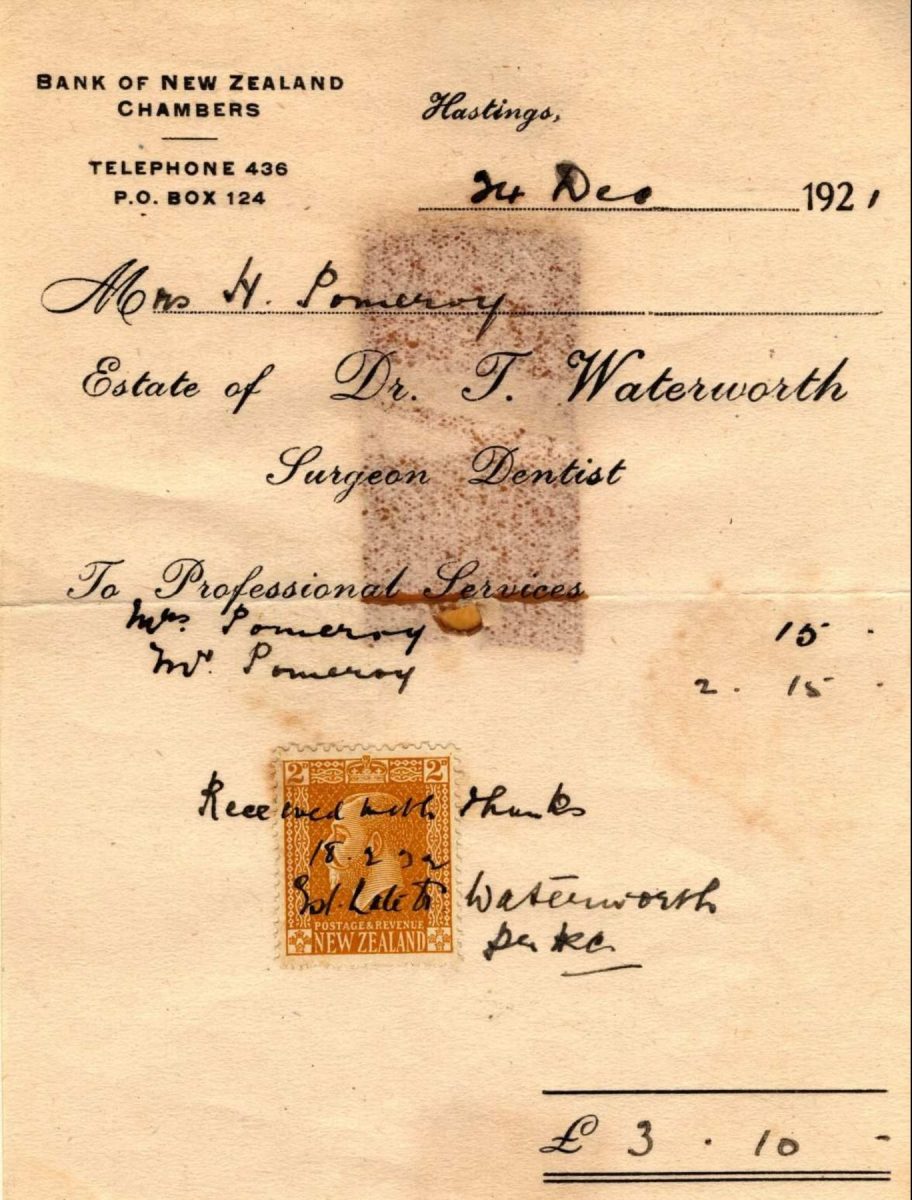 BANK OF NEW ZEALAND
CHAMBERS
TELEPHONE 436
P.O. BOX 124
Hastings,
24 Dec 1921
Mrs H. Pomeroy
Estate of Dr. T. Waterworth
Surgeon Dentist
To Professional Services
Mrs. Pomeroy 15 -
Mr. Pomeroy 2. 15 -
2D 2D
Received with thanks
18.2.22
Est. Late Dr Waterworth
per
POSTAGE & REVENUE
NEW ZEALAND
£ 3 . 10 -